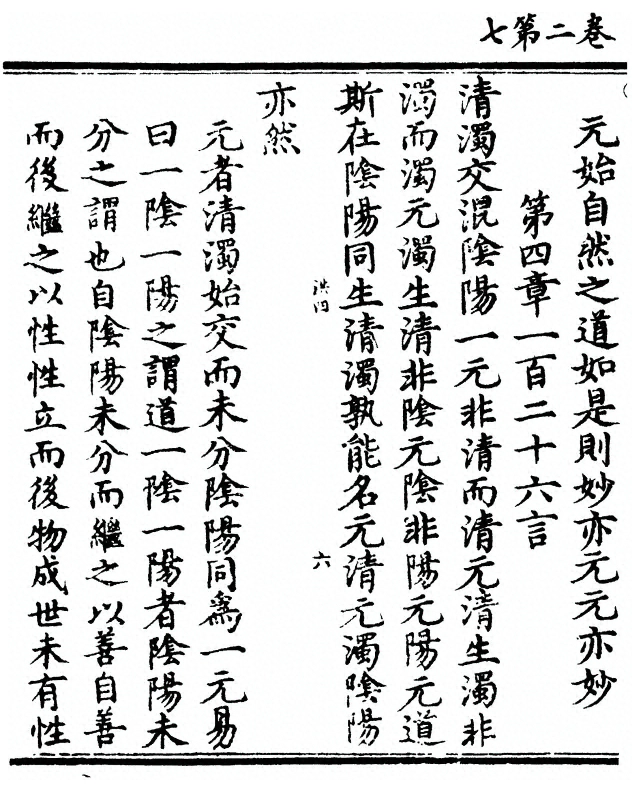 七第二卷
元始自然之道如是則妙亦元元亦妙
第四章一百二十六言
清濁交混陰陽一元非清而清元清生濁非
濁而濁元濁生清非陰元陰非陽元陽元道
斯在陰陽同生清濁孰能名元清元濁陰陽
洪四
六
亦然
元者清濁始交而未分陰陽同為一元易
曰一陰一陽之謂道一陰一陽者陰陽未
分之謂也自陰陽未分而繼之以善自善
而後繼之以性性立而後物成世未有性